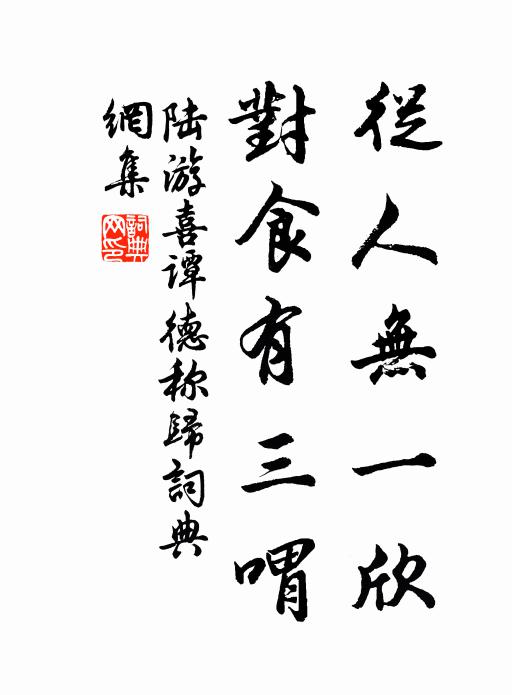 從人無一欣
對食有三喟
陆游喜谭德称歸詞典
網集
詞典网印